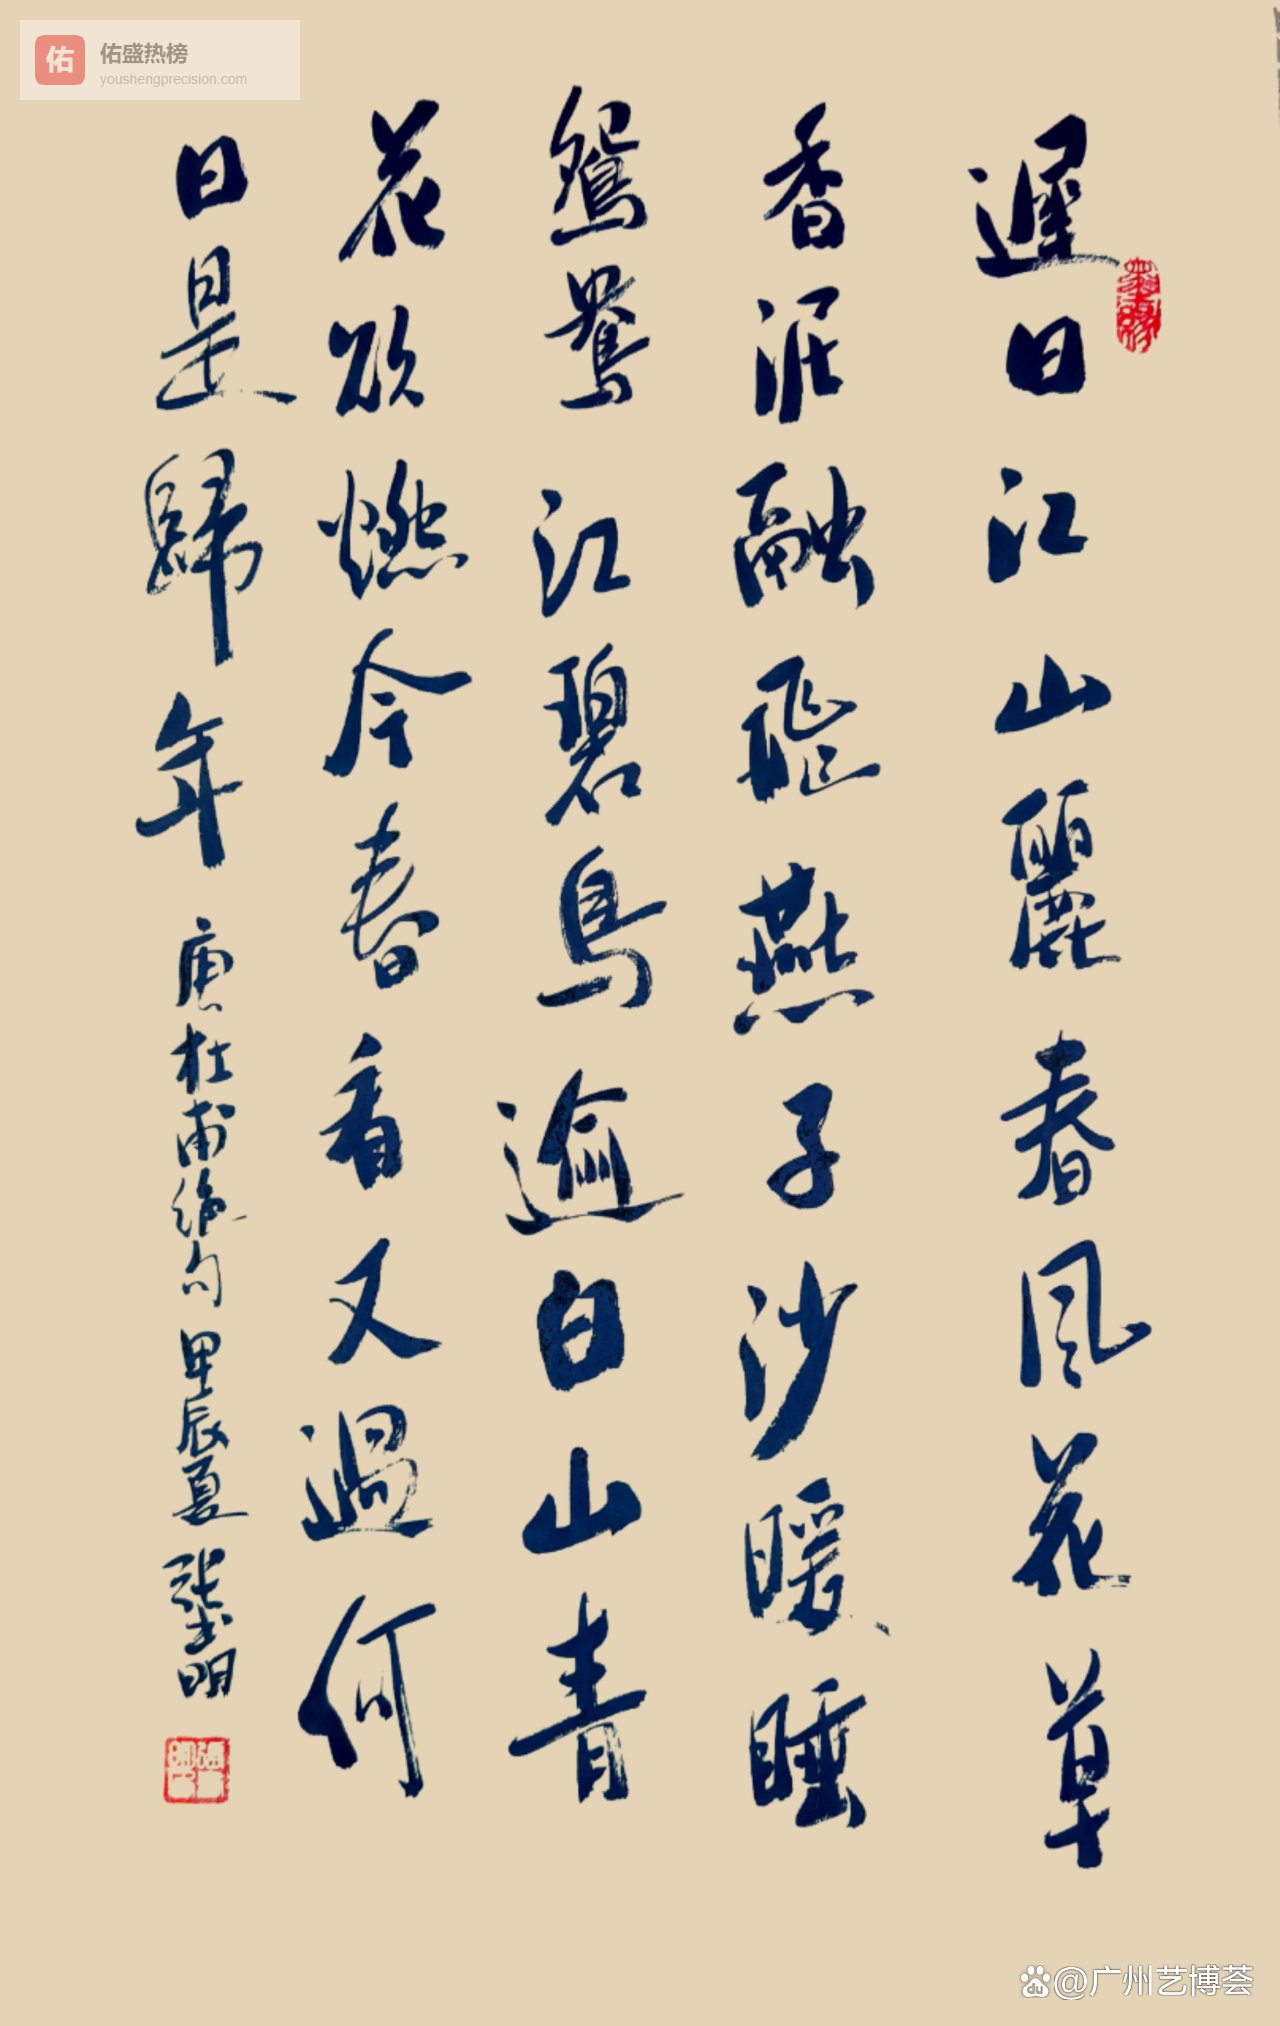 佑 佑盛热榜
youshengprecision.com
遲日江山麗春風花草
香泥融飛燕子沙暖睡
鴛鴦江碧鳥逾白山青
花欲燃今春看又過何
日是歸年 唐杜甫絕句 甲辰夏 張明
du @广州艺博荟